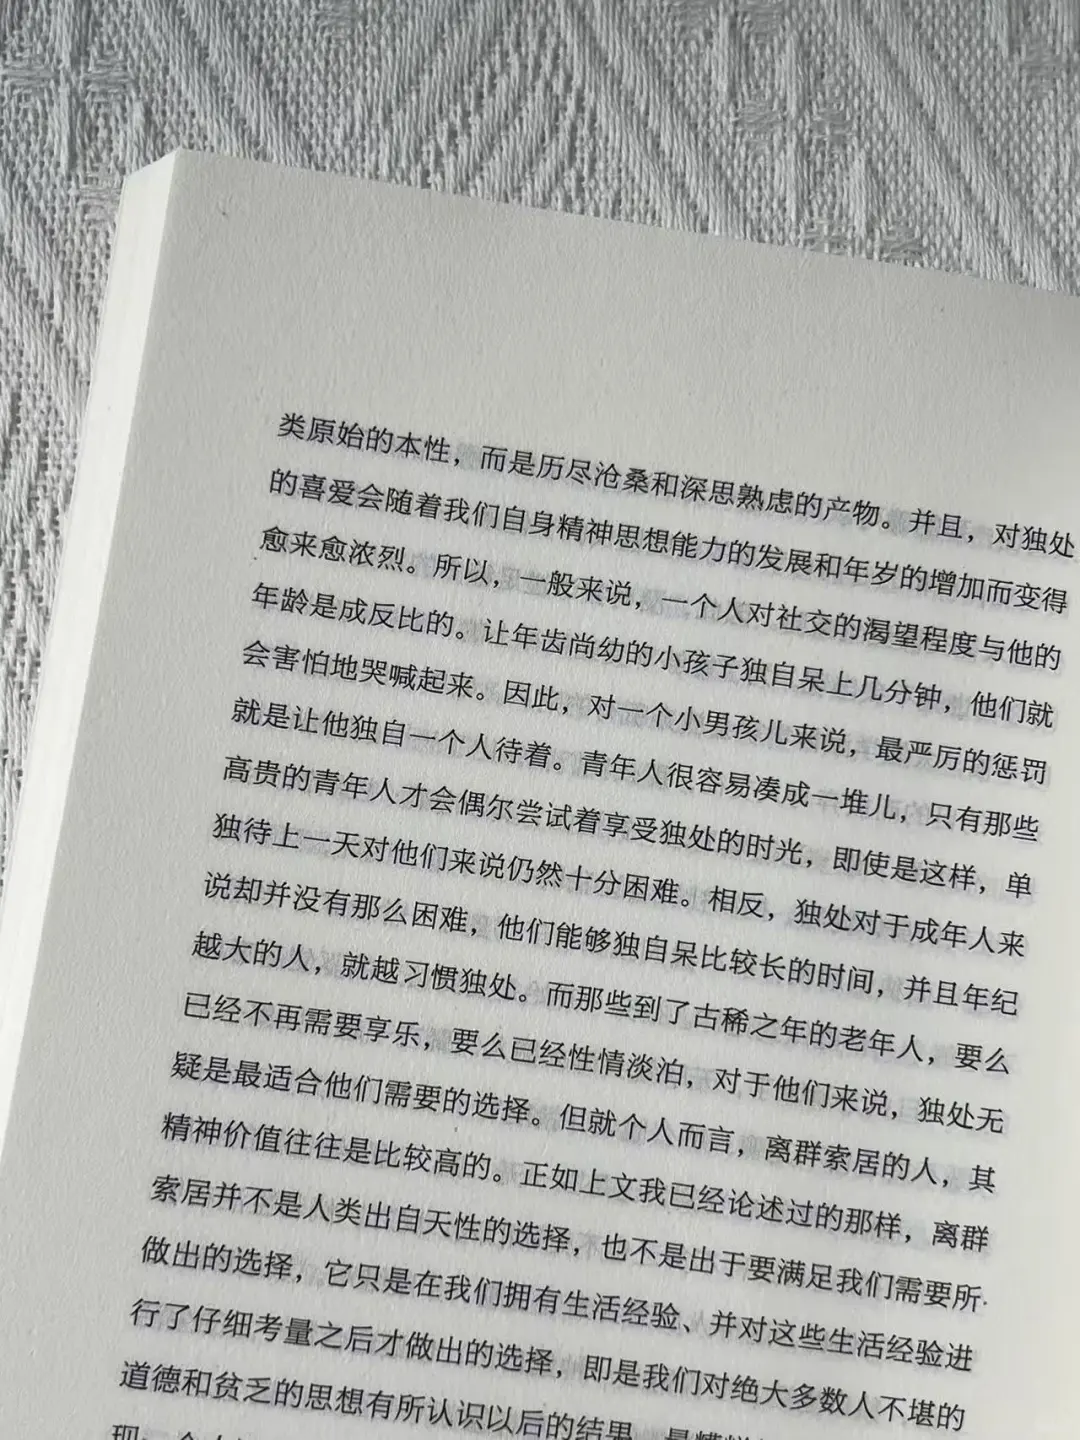 类原始的本性，而是历尽沧桑和深思熟虑的产物。并且，对独处
的喜爱会随着我们自身精神思想能力的发展和年岁的增加而变得
愈来愈浓烈。所以，一般来说，一个人对社交的渴望程度与他的
年龄是成反比的。让年齿尚幼的小孩子独自呆上几分钟，他们就
会害怕地哭喊起来。因此，对一个小男孩儿来说，最严厉的惩罚
就是让他独自一个人待着。青年人很容易凑成一堆儿，只有那些
高贵的青年人才会偶尔尝试着享受独处的时光，即使是这样，单
独待上一天对他们来说仍然十分困难。相反，独处对于成年人来
说却并没有那么困难，他们能够独自呆比较长的时间，并且年纪
越大的人，就越习惯独处。而那些到了古稀之年的老年人，要么
已经不再需要享乐，要么已经性情淡泊，对于他们来说，独处无
疑是最适合他们需要的选择。但就个人而言，离群索居的人，其
精神价值往往是比较高的。正如上文我已经论述过的那样，离群
索居并不是人类出自天性的选择，也不是出于要满足我们需要所
做出的选择，它只是在我们拥有生活经验、并对这些生活经验进
行了仔细考量之后才做出的选择，即是我们对绝大多数人不堪的
道德和贫乏的思想有所认识以后的结果。最糟